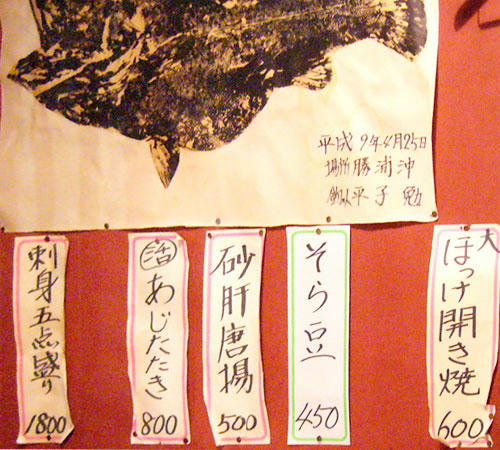 平成9年4月25日
場所 勝浦沖
釣人 平子 勉
大
ほっけ開き焼
600
そら豆
450
砂肝唐揚
500
活あじたたき
800
刺身五点盛り
1800